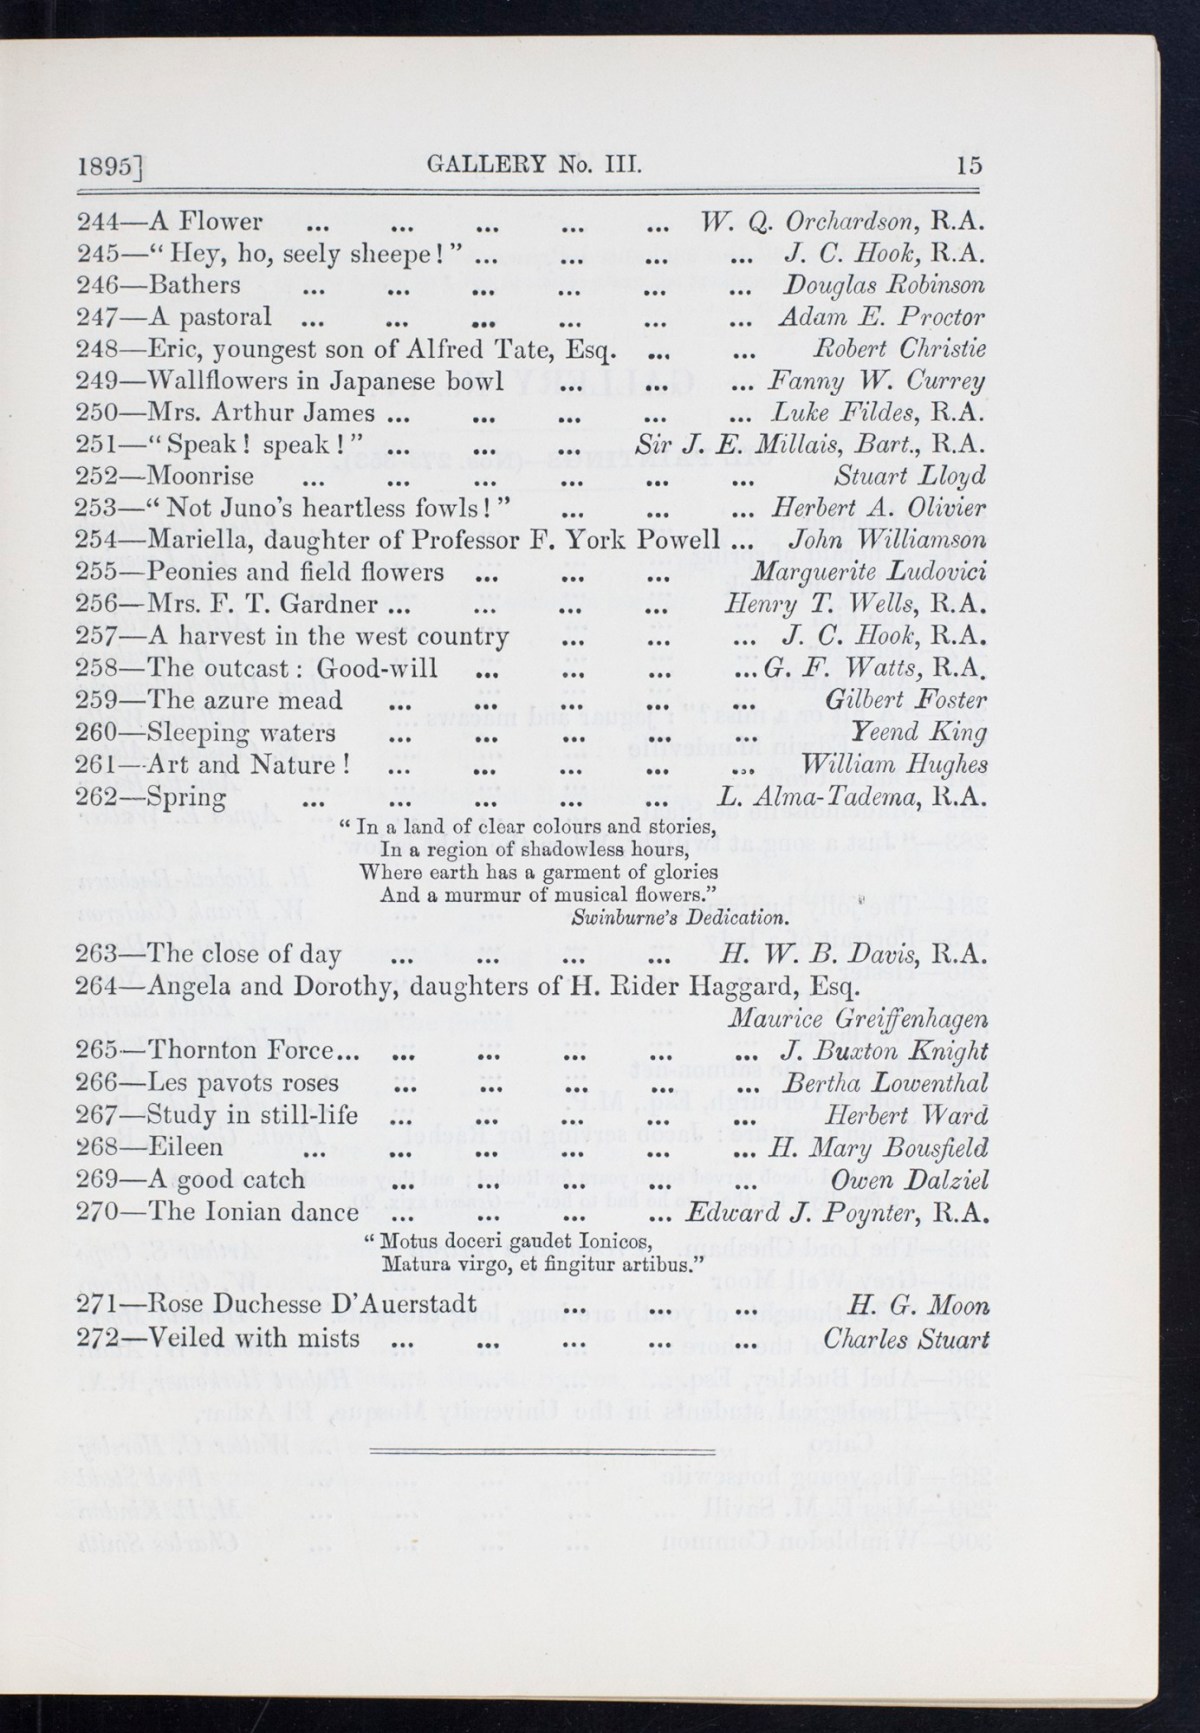 1895] GALLERY No. III. 15
244—A Flower ... ... ... ... ... W. Q. Orchardson, R.A.
245—“Hey, ho, seely sheepe!” ... ... ... ... J. C. Hook, R.A.
246—Bathers ... ... ... ... ... ... Douglas Robinson
247—A pastoral ... ... ... ... ... ... Adam E. Proctor
248—Eric, youngest son of Alfred Tate, Esq. ... ... Robert Christie
249—Wallflowers in Japanese bowl ... ... ... Fanny W. Currey
250—Mrs. Arthur James ... ... ... ... ... Luke Fildes, R.A.
251—“Speak! speak!” ... ... ... Sir J. E. Millais, Bart., R.A.
252—Moonrise ... ... ... ... ... ... Stuart Lloyd
253—“Not Juno's heartless fowls!” ... ... ... Herbert A. Olivier
254—Mariella, daughter of Professor F. York Powell ... John Williamson
255—Peonies and field flowers ... ... ... Marguerite Ludovici
256—Mrs. F. T. Gardner ... ... ... ... Henry T. Wells, R.A.
257—A harvest in the west country ... ... ... J. C. Hook, R.A.
258—The outcast: Good-will ... ... ... ... G. F. Watts, R.A.
259—The azure mead ... ... ... ... ... Gilbert Foster
260—Sleeping waters ... ... ... ... ... Yeend King
261—Art and Nature! ... ... ... ... ... William Hughes
262—Spring ... ... ... ... ... L. Alma-Tadema, R.A.
“In a land of clear colours and stories,
In a region of shadowless hours,
Where earth has a garment of glories
And a murmur of musical flowers.”
Swinburne's Dedication.
263—The close of day ... ... ... ... H. W. B. Davis, R.A.
264—Angela and Dorothy, daughters of H. Rider Haggard, Esq.
Maurice Greiffenhagen
265—Thornton Force... ... ... ... ... ... J. Buxton Knight
266—Les pavots roses ... ... ... ... ... Bertha Lowenthal
267—Study in still-life ... ... ... ... ... Herbert Ward
268—Eileen ... ... ... ... ... ... H. Mary Bousfield
269—A good catch ... ... ... ... ... Owen Dalziel
270—The Ionian dance ... ... ... ... Edward J. Poynter, R.A.
“Motus doceri gaudet Ionicos,
Matura virgo, et fingitur artibus.”
271—Rose Duchesse D'Auerstadt ... ... ... H. G. Moon
272—Veiled with mists ... ... ... ... ... Charles Stuart